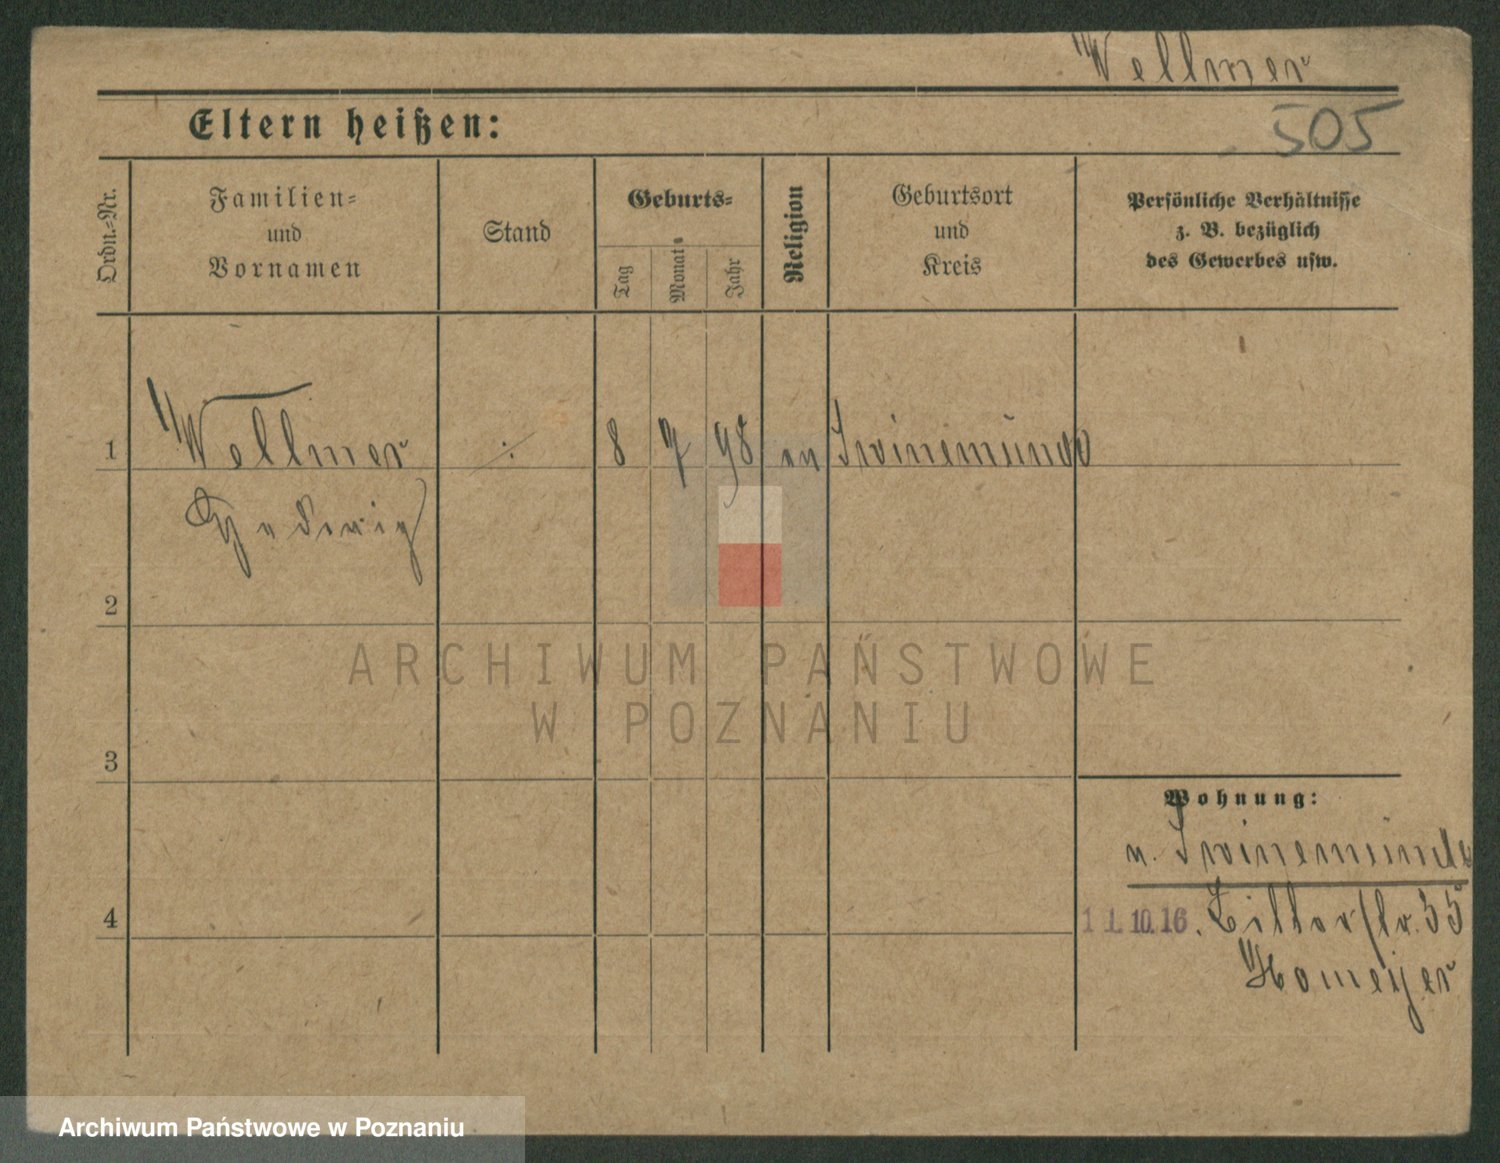 Wellmer
Eltern heißen:
505
Ordn.-Nr.
Familien-
und
Vornamen
Stand
Geburts-
Tag
Monat
Jahr
Religion
Geburtsort
und
Kreis
Persönliche Verhältnisse
z. B. bezüglich
des Gewerbes usw.
1
Wellmer
8 7 98 ev Swinemünde
Hedwig
2
3
4
ARCHIWUM PAŃSTWOWE
W POZNANIU
Wohnung:
n. Swinemünde
11.10.16.
35
Homeyer
Archiwum Państwowe w Poznaniu